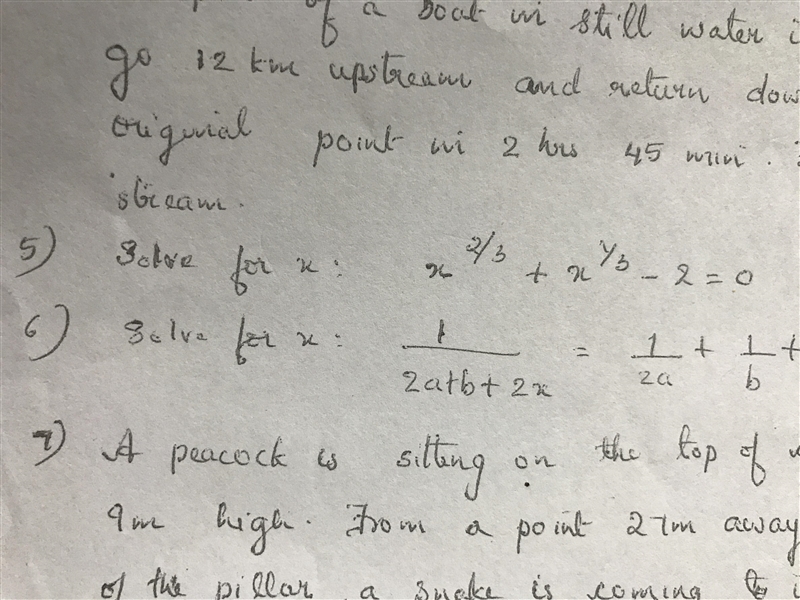 of a boat in still water i
go 12 km upstream and return dow
original point in 2 hrs 45 min.
stream.
5) Solve for x: x^2/3 + x^1/3 - 2 = 0
6) Solve for x: 1/(2a+b+2x) = 1/2a + 1/b +
7) A peacock is sitting on the top of
9m high. From a point 27m away
of the pillar, a snake is coming to i